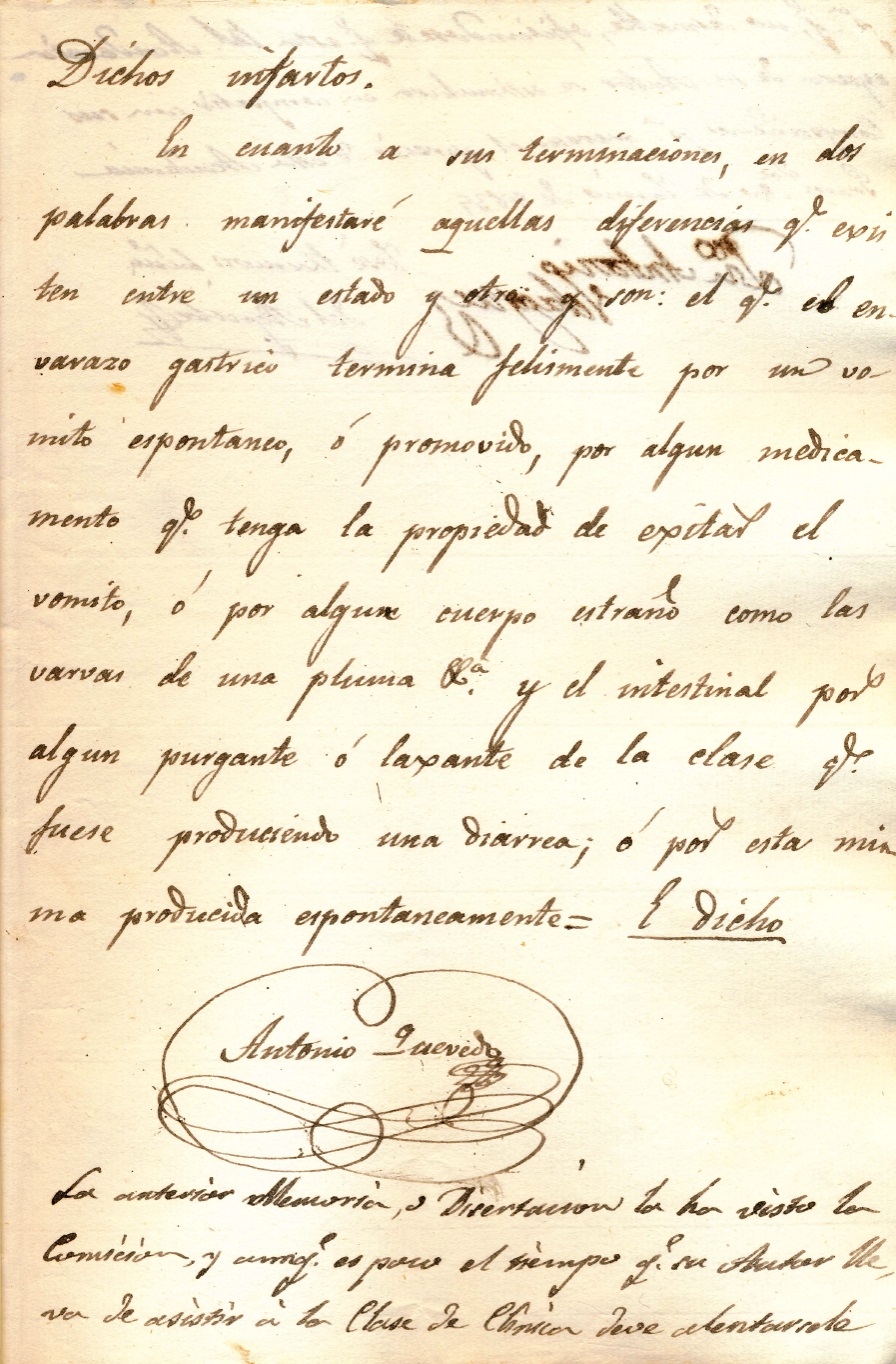 Dichos infartos.
En cuanto a sus terminaciones, en dos
palabras manifestaré aquellas diferencias q.e exis
ten entre un estado y otro: y son: el q.e el en-
varazo gastrico termina felismente por un vo-
mito espontaneo, ó promovido, por algun medica-
mento q.e tenga la propiedad de exitar el
vomito, ó por algun cuerpo estraño como las
varvas de una pluma &.a y el intestinal por
algun purgante ó laxante de la clase q.e
fuese produciendo una diarrea; ó por esta mis
ma producida espontaneamente = E dicho
Antonio Quevedo
La anterior Memoria, o Disertacion la ha visto la
Comision, y aunq.e es poco el tiempo q.e su Autor lle,
va de asistir à la Clase de Clinica deve alentarsele